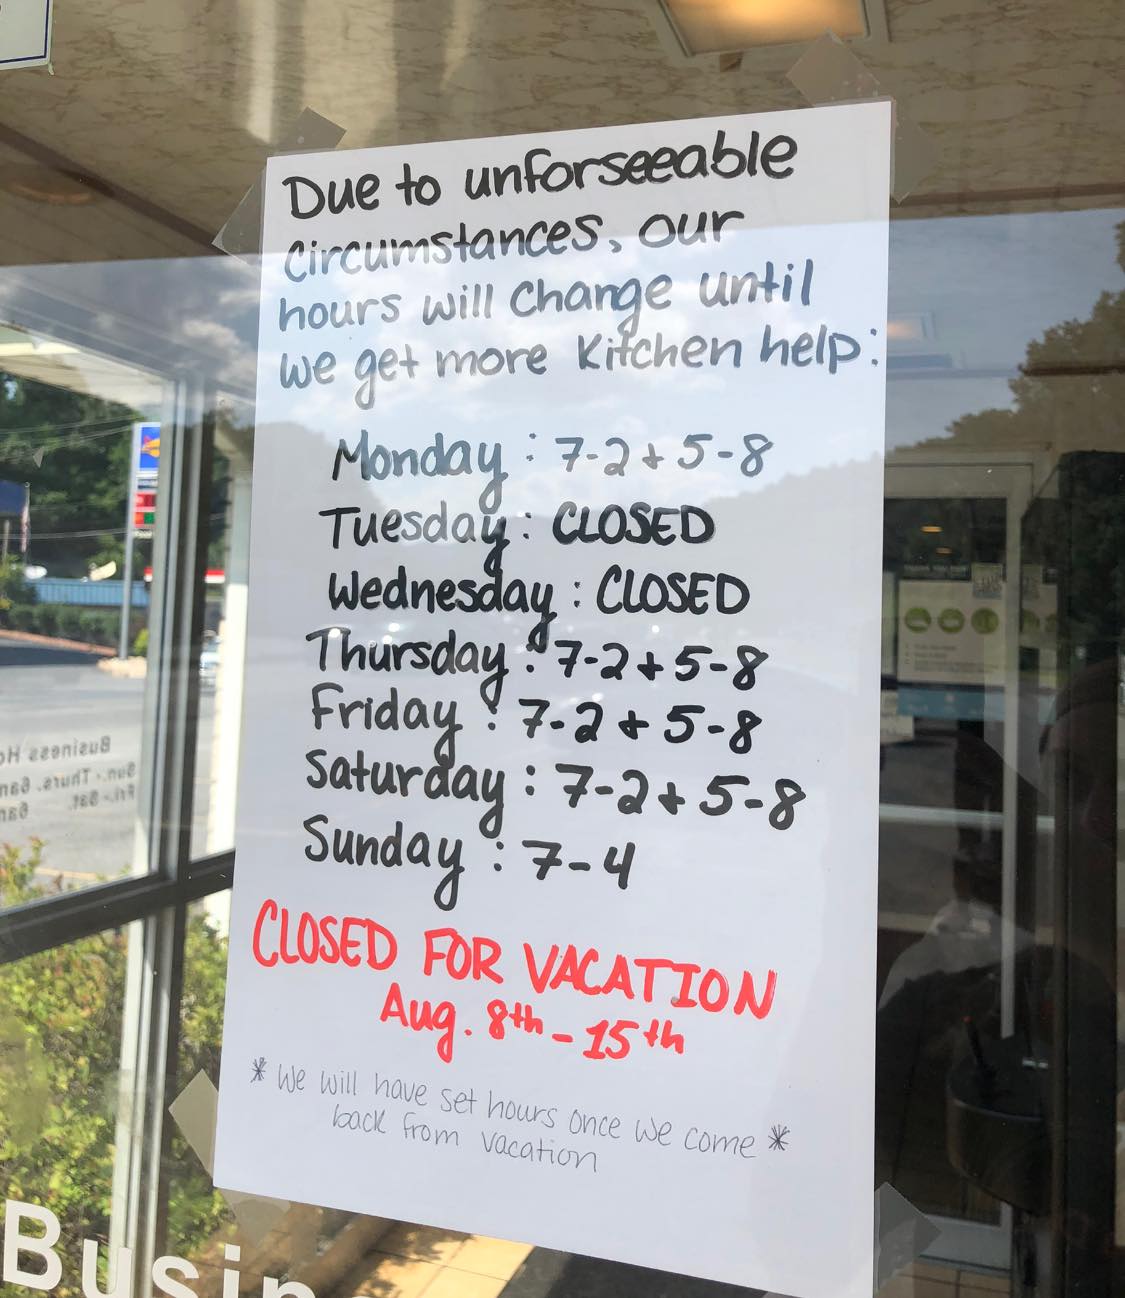 Due to unforseeable
circumstances, our
hours will change until
we get more kitchen help:
Monday: 7-2 + 5-8
Tuesday: CLOSED
Wednesday: CLOSED
Thursday: 7-2 + 5-8
Friday: 7-2 + 5-8
Saturday: 7-2 + 5-8
Sunday: 7-4
CLOSED FOR VACATION
Aug. 8th - 15th
* We will have set hours once we come *
back from vacation
Business Ho
Sun.-Thurs. 6am
Fri.-Sat. 6am
Busin